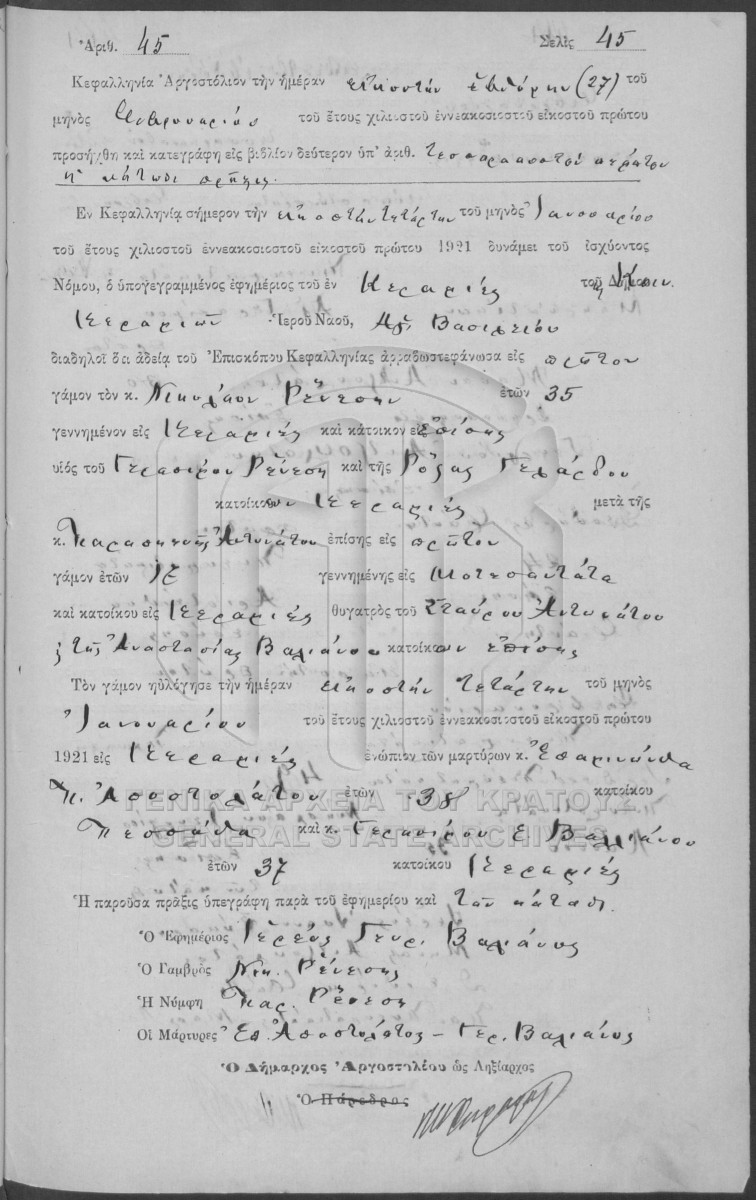 Ἀριθ. 45 Σελὶς 45
Κεφαλληνία Ἀργοστόλιον τὴν ἡμέραν εἰκοστὴν ἑβδόμην (27) τοῦ
μηνὸς Φεβρουαρίου τοῦ ἔτους χιλιοστοῦ ἐννεακοσιοστοῦ εἰκοστοῦ πρώτου
προσήχθη καὶ κατεγράφη εἰς βιβλίον δεύτερον ὑπ' ἀριθ. τεσσαρακοστὸν πέμπτον
ἡ κάτωθι πρᾶξις.
Ἐν Κεφαλληνίᾳ σήμερον τὴν εἰκοστὴν τετάρτην τοῦ μηνὸς Ἰανουαρίου
τοῦ ἔτους χιλιοστοῦ ἐννεακοσιοστοῦ εἰκοστοῦ πρώτου 1921 δυνάμει τοῦ ἰσχύοντος
Νόμου, ὁ ὑπογεγραμμένος ἐφημέριος τοῦ ἐν Κεραμιές
Κεραμιῶν Ἱεροῦ Ναοῦ, Ἁγ. Βασιλείου
διαδηλοῖ ὅτι ἀδείᾳ τοῦ Ἐπισκόπου Κεφαλληνίας ἀρραβωστεφάνωσα εἰς πρῶτον
γάμον τὸν κ. Νικόλαον Ρένεσην ἐτῶν 35
γεννημένον εἰς Κεραμιές καὶ κάτοικον εἰς ἐπίσης
υἱὸς τοῦ Γερασίμου Ρένεση καὶ τῆς Ρόζας Γελάρδου
κατοίκων Κεραμιές μετὰ τῆς
κ. Παρασκευῆς Ἀντωνάτου ἐπίσης εἰς πρῶτον
γάμον ἐτῶν γεννημένης εἰς
καὶ κατοίκου εἰς Κεραμιές θυγατρὸς τοῦ Σταύρου Ἀντωνάτου
ϗ τῆς Ἀναστασίας Βαλιάνου κατοίκων ἐπίσης
Τὸν γάμον ηὐλόγησε τὴν ἡμέραν εἰκοστὴν τετάρτην τοῦ μηνὸς
Ἰανουαρίου τοῦ ἔτους χιλιοστοῦ ἐννεακοσιοστοῦ εἰκοστοῦ πρώτου
1921 εἰς Κεραμιές ἐνώπιον τῶν μαρτύρων κ. Ἐπαμινώνδα
Π. Ἀποστολάτου ἐτῶν 38 κατοίκου
Πεσσάδα καὶ κ. Γερασίμου Ε. Βαλλιάνου
ἐτῶν 37 κατοίκου Κεραμιές
Ἡ παροῦσα πρᾶξις ὑπεγράφη παρὰ τοῦ ἐφημερίου καὶ τῶν κάτωθι.
Ὁ Ἐφημέριος Ἱερεὺς Γεωρ. Βαλιάνος
Ὁ Γαμβρὸς Νικ. Ρένεσης
Ἡ Νύμφη Παρ. Ρένεση
Οἱ Μάρτυρες Ἐπ. Ἀποστολάτος - Γερ. Βαλιάνος
Ὁ Δήμαρχος Ἀργοστολίου ὡς Ληξίαρχος
Ὁ Πάρεδρος
ΓΕΝΙΚΑ ΑΡΧΕΙΑ ΤΟΥ ΚΡΑΤΟΥΣ
GENERAL STATE ARCHIVES